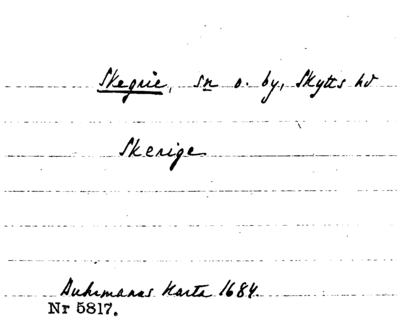 Skegrie, sn o. by, Skytts hd
Skerige
Buhrmanns Karta 1684.
Nr 5817.